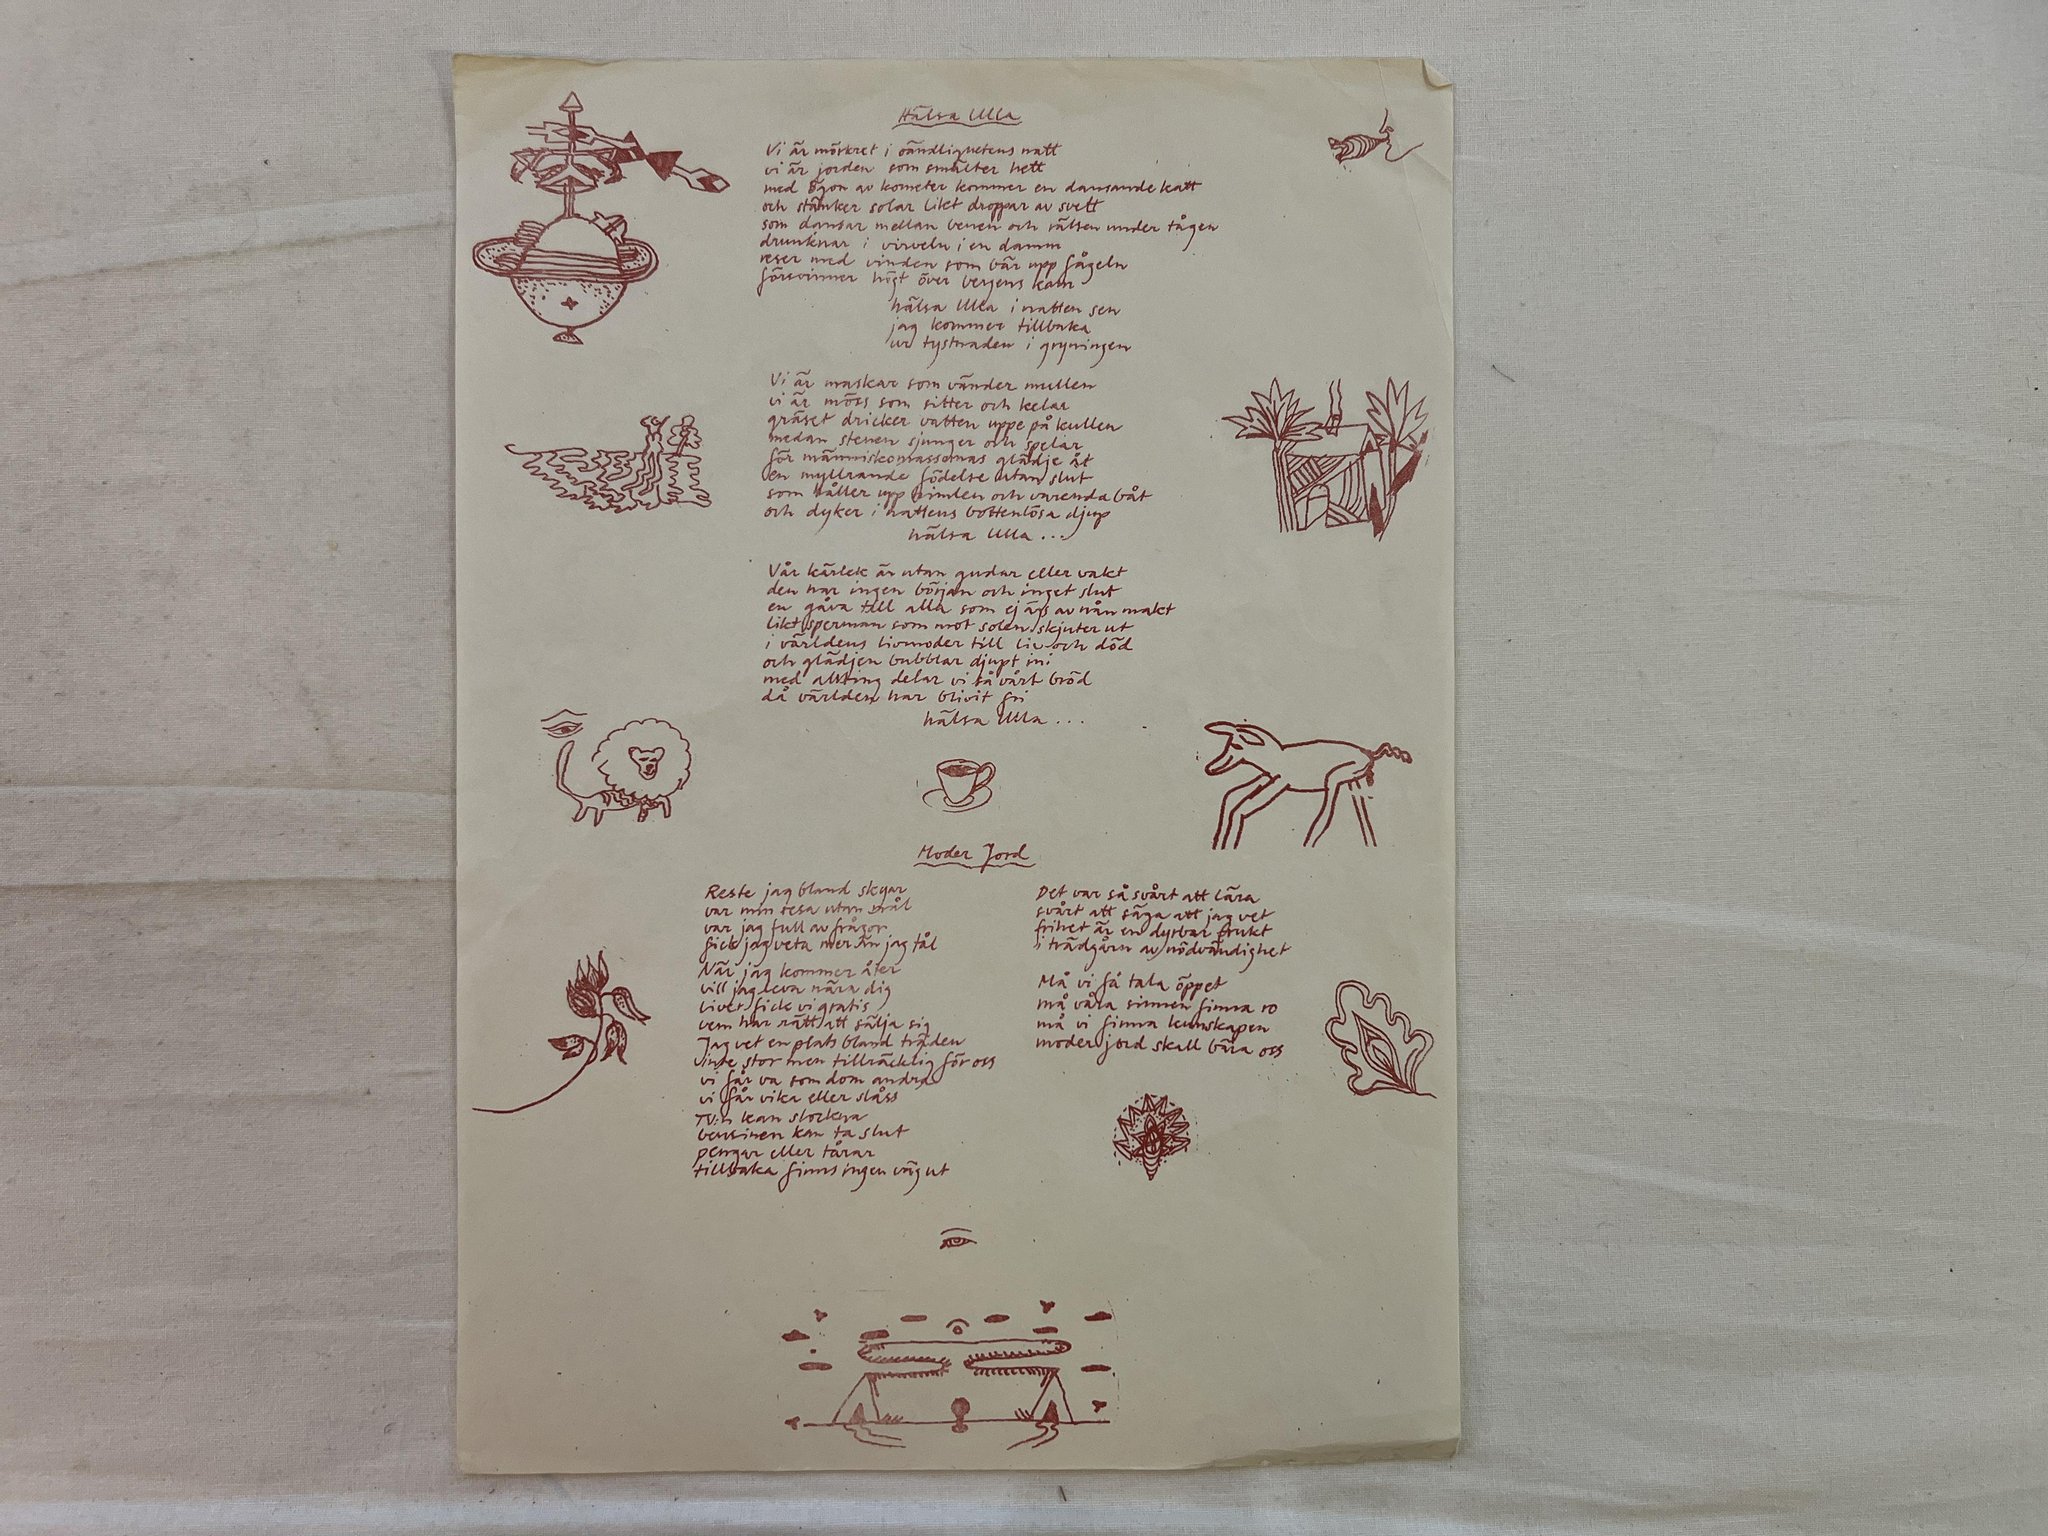 Hälsa Ulla
Vi är mörkret i oändlighetens natt
vi är jorden som smälter hett
med ögon av kometer kommer en dansande katt
och stänker solar likt droppar av svett
som dansar mellan benen och välten under tågen
drunknar i virveln i en damm
reser med vinden som bär upp fågeln
försvinner högt över bergens kam
hälsa Ulla i natten sen
jag kommer tillbaka
ur tystnaden i gryningen
Vi är maskar som vänder mullen
vi är möss som sitter och kelar
gräset dricker vatten uppe på kullen
medan stenen sjunger och spelar
för människomassornas glädje åt
en myllrande födelse utan slut
som håller upp himlen och varenda båt
och dyker i nattens bottenlösa djup
hälsa Ulla ...
Vår kärlek är utan gudar eller vakt
den har ingen början och inget slut
en gåva till alla som ej ägs av nån makt
likt sperman som mot solen skjuter ut
i världens livmoder till liv och död
och glädjen bubblar djupt ini
med allting delar vi så vårt bröd
då världen har blivit fri
hälsa Ulla ...
Moder Jord
Reste jag bland skyar
var min resa utan mål
var jag full av frågor
fick jag veta mer än jag tål
När jag kommer åter
vill jag leva nära dig
livet fick vi gratis
vem har rätt att sälja sig
Jag vet en plats bland träden
inte stor men tillräcklig för oss
vi får va som dom andra
vi får vika eller slåss
TV:n kan slockna
bensinen kan ta slut
pengar eller tårar
tillbaka finns ingen väg ut
Det var så svårt att lära
svårt att säga att jag vet
frihet är en dyrbar frukt
i trädgårn av nödvändighet
Må vi få tala öppet
må våra sinnen finna ro
må vi finna kunskapen
moder jord skall bära oss